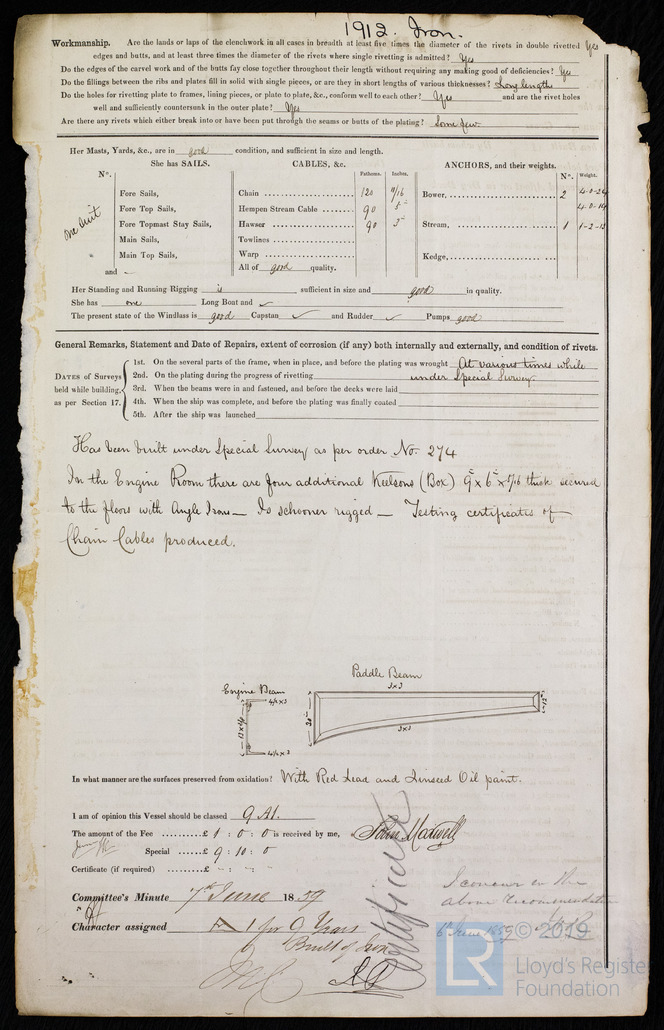 1912. Iron.
Workmanship. Are the lands or laps of the clenchwork in all cases in breadth at least five times the diameter of the rivets in double rivetted Yes
edges and butts, and at least three times the diameter of the rivets where single rivetting is admitted? Yes
Do the edges of the carvel work and of the butts fay close together throughout their length without requiring any making good of deficiencies? Yes
Do the fillings between the ribs and plates fill in solid with single pieces, or are they in short lengths of various thicknesses? Long lengths
Do the holes for rivetting plate to frames, lining pieces, or plate to plate, &c., conform well to each other? Yes and are the rivet holes
well and sufficiently countersunk in the outer plate? Yes
Are there any rivets which either break into or have been put through the seams or butts of the plating? Some few
Her Masts, Yards, &c., are in good condition, and sufficient in size and length.
She has SAILS. CABLES, &c. ANCHORS, and their weights.
N°. Fathoms. Inches. N°. Weight.
Fore Sails, Chain 120 11/16 Bower, 2 4-0-24
Fore Top Sails, Hempen Stream Cable 90 5 4-0-14
one suit Fore Topmast Stay Sails, Hawser 90 3 Stream, 1 1-2-12
Main Sails, Towlines
Main Top Sails, Warp Kedge,
and All of good quality.
Her Standing and Running Rigging is sufficient in size and good in quality.
She has one Long Boat and
The present state of the Windlass is good Capstan and Rudder Pumps good
General Remarks, Statement and Date of Repairs, extent of corrosion (if any) both internally and externally, and condition of rivets.
DATES of Surveys held while building, as per Section 17.
1st. On the several parts of the frame, when in place, and before the plating was wrought At various times while
2nd. On the plating during the progress of rivetting under Special Survey.
3rd. When the beams were in and fastened, and before the decks were laid
4th. When the ship was complete, and before the plating was finally coated
5th. After the ship was launched
Has been built under Special Survey as per order No. 274
In the Engine Room there are four additional Keelsons (Box) 9 x 6 x 5/16 thick secured
to the floors with Angle Iron — Is schooner rigged — Testing certificates of
Chain Cables produced.
Paddle Beam
3x3
Engine Beam
3x3
In what manner are the surfaces preserved from oxidation? With Red Lead and Linseed Oil paint.
I am of opinion this Vessel should be classed 9 A1.
The amount of the Fee £ 1 : 0 : 0 is received by me, John Maxwell
Special £ 9 : 10 : 0
Certificate (if required) £
Certificate
Committee's Minute 7th June 1859
I concur in the
above recommendation
Character assigned A 1 for 9 Years
6th June 1859
Built of Iron
LR © 2019
Lloyd's Register
Foundation